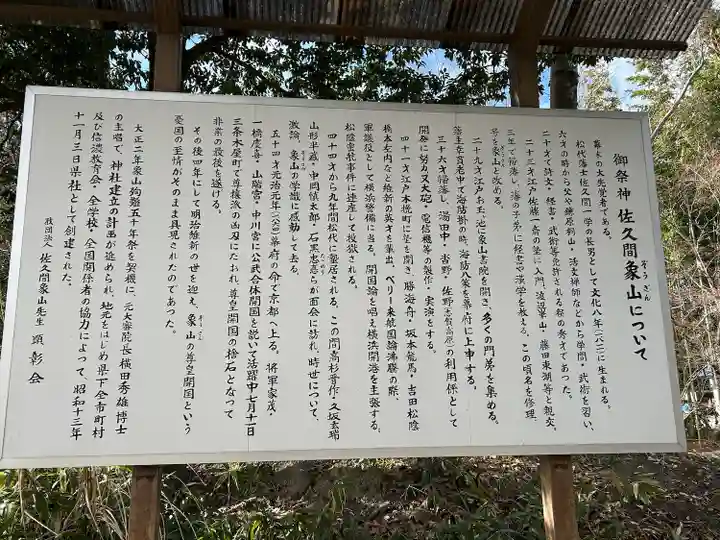 御祭神 佐久間象山について
ぞうざん
幕末の大先覚者である。
松代藩士佐久間一学の長男として文化八年(一八一一)に生まれる。
六才の時から父や鎌原桐山・活文禅師などから学問・武術を習い、
二十才で詩文・経書・武術等免許される程の秀才であった。
二十三才江戸佐藤一斎の塾に入門、渡辺華山・藤田東湖等と親交、
三年で帰藩し、藩の子弟に経書や漢学を教える。この頃名を修理、
号を象山と改める。
二十九才江戸お玉ヶ池に象山書院を開き、多くの門弟を集める。
藩主幸貫老中で海防掛の時、海防八策を幕府に上申する。
三十六才帰藩し、湯田中・沓野・佐野(志賀高原)の利用係として
開発に努力又大砲・電信機等の製作・実演をする。
四十一才江戸木挽町に塾を開き、勝海舟・坂本龍馬・吉田松陰
橋本左内など維新の英才を輩出、ペリー来航国論沸騰の際、
軍議役として横浜警備に当る。開国論を唱え横浜開港を主張する。
松陰密航事件に連座して投獄される。
四十四才から九年間松代に蟄居される。この間高杉晋作・久坂玄瑞
山形半蔵・中岡慎太郎・石末忠憙らが面会に訪れ、時世について、
激論、象山の学識に感動して去る。
五十四才元治元年(一八六四)幕府の命で京都へ上る。将軍家茂・
一橋慶喜・山階宮・中川宮に公武合体開国を説いて活躍中七月十一日
三条木屋町で尊攘派の凶刃にたおれ、尊皇開国の捨石となって
非常の最後を遂げる。
その後四年にして明治維新の世を迎え、象山の尊皇開国という
ぞうざん
憂国の至情がそのまま具現されたのであった。
大正二年象山殉難五十年祭を契機に、元大審院長横田秀雄博士
の主唱で、神社建立の計画が進められ、地元をはじめ県下全市町村
及び信濃教育会・全学校・全国関係者の協力によって、昭和十三年
十一月三日県社として創建された。
財団法人 佐久間象山先生 顕彰会